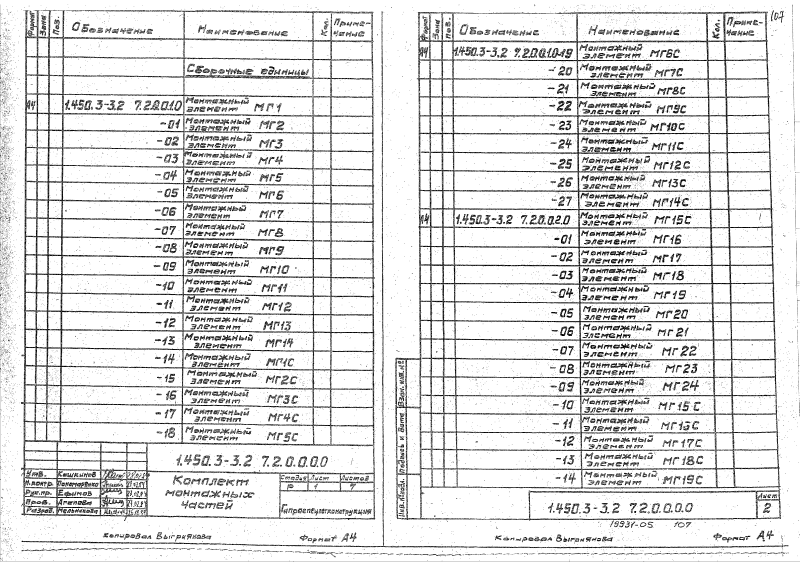 Формат Зона Поз. Обозначение Наименование Кол. Приме-
чание
Сборочные единицы
А4 1.450.3-3.2 7.2.0.0.1.0 Монтажный
элемент МГ1
-01 Монтажный
элемент МГ2
-02 Монтажный
элемент МГ3
-03 Монтажный
элемент МГ4
-04 Монтажный
элемент МГ5
-05 Монтажный
элемент МГ6
-06 Монтажный
элемент МГ7
-07 Монтажный
элемент МГ8
-08 Монтажный
элемент МГ9
-09 Монтажный
элемент МГ10
-10 Монтажный
элемент МГ11
-11 Монтажный
элемент МГ12
-12 Монтажный
элемент МГ13
-13 Монтажный
элемент МГ14
-14 Монтажный
элемент МГ1С
-15 Монтажный
элемент МГ2С
-16 Монтажный
элемент МГ3С
-17 Монтажный
элемент МГ4С
-18 Монтажный
элемент МГ5С
1.450.3-3.2 7.2.0.0.0.0
Утв. Кышкинов
Н.контр. Пономаренко
Рук.пр. Ефимов
Пров. Агапова
Разраб. Мельникова
Комплект
монтажных
частей
Стадия Лист Листов
Р 1 7
Гипроспецлегконструкция
Копировал Выгриянова Формат А4
107
Формат Зона Поз. Обозначение Наименование Кол. Приме-
чание
А4 1.450.3-3.2 7.2.0.0.1.0-19 Монтажный
элемент МГ6С
-20 Монтажный
элемент МГ7С
-21 Монтажный
элемент МГ8С
-22 Монтажный
элемент МГ9С
-23 Монтажный
элемент МГ10С
-24 Монтажный
элемент МГ11С
-25 Монтажный
элемент МГ12С
-26 Монтажный
элемент МГ13С
-27 Монтажный
элемент МГ14С
А4 1.450.3-3.2 7.2.0.0.2.0 Монтажный
элемент МГ15С
-01 Монтажный
элемент МГ16
-02 Монтажный
элемент МГ17
-03 Монтажный
элемент МГ18
-04 Монтажный
элемент МГ19
-05 Монтажный
элемент МГ20
-06 Монтажный
элемент МГ21
-07 Монтажный
элемент МГ22
-08 Монтажный
элемент МГ23
-09 Монтажный
элемент МГ24
-10 Монтажный
элемент МГ15С
-11 Монтажный
элемент МГ16С
-12 Монтажный
элемент МГ17С
-13 Монтажный
элемент МГ18С
-14 Монтажный
элемент МГ19С
Инв.№подл. Подпись и дата Взам. инв.№
1.450.3-3.2 7.2.0.0.0.0
Лист
2
19931-05 107
Копировал Выгриянова Формат А4